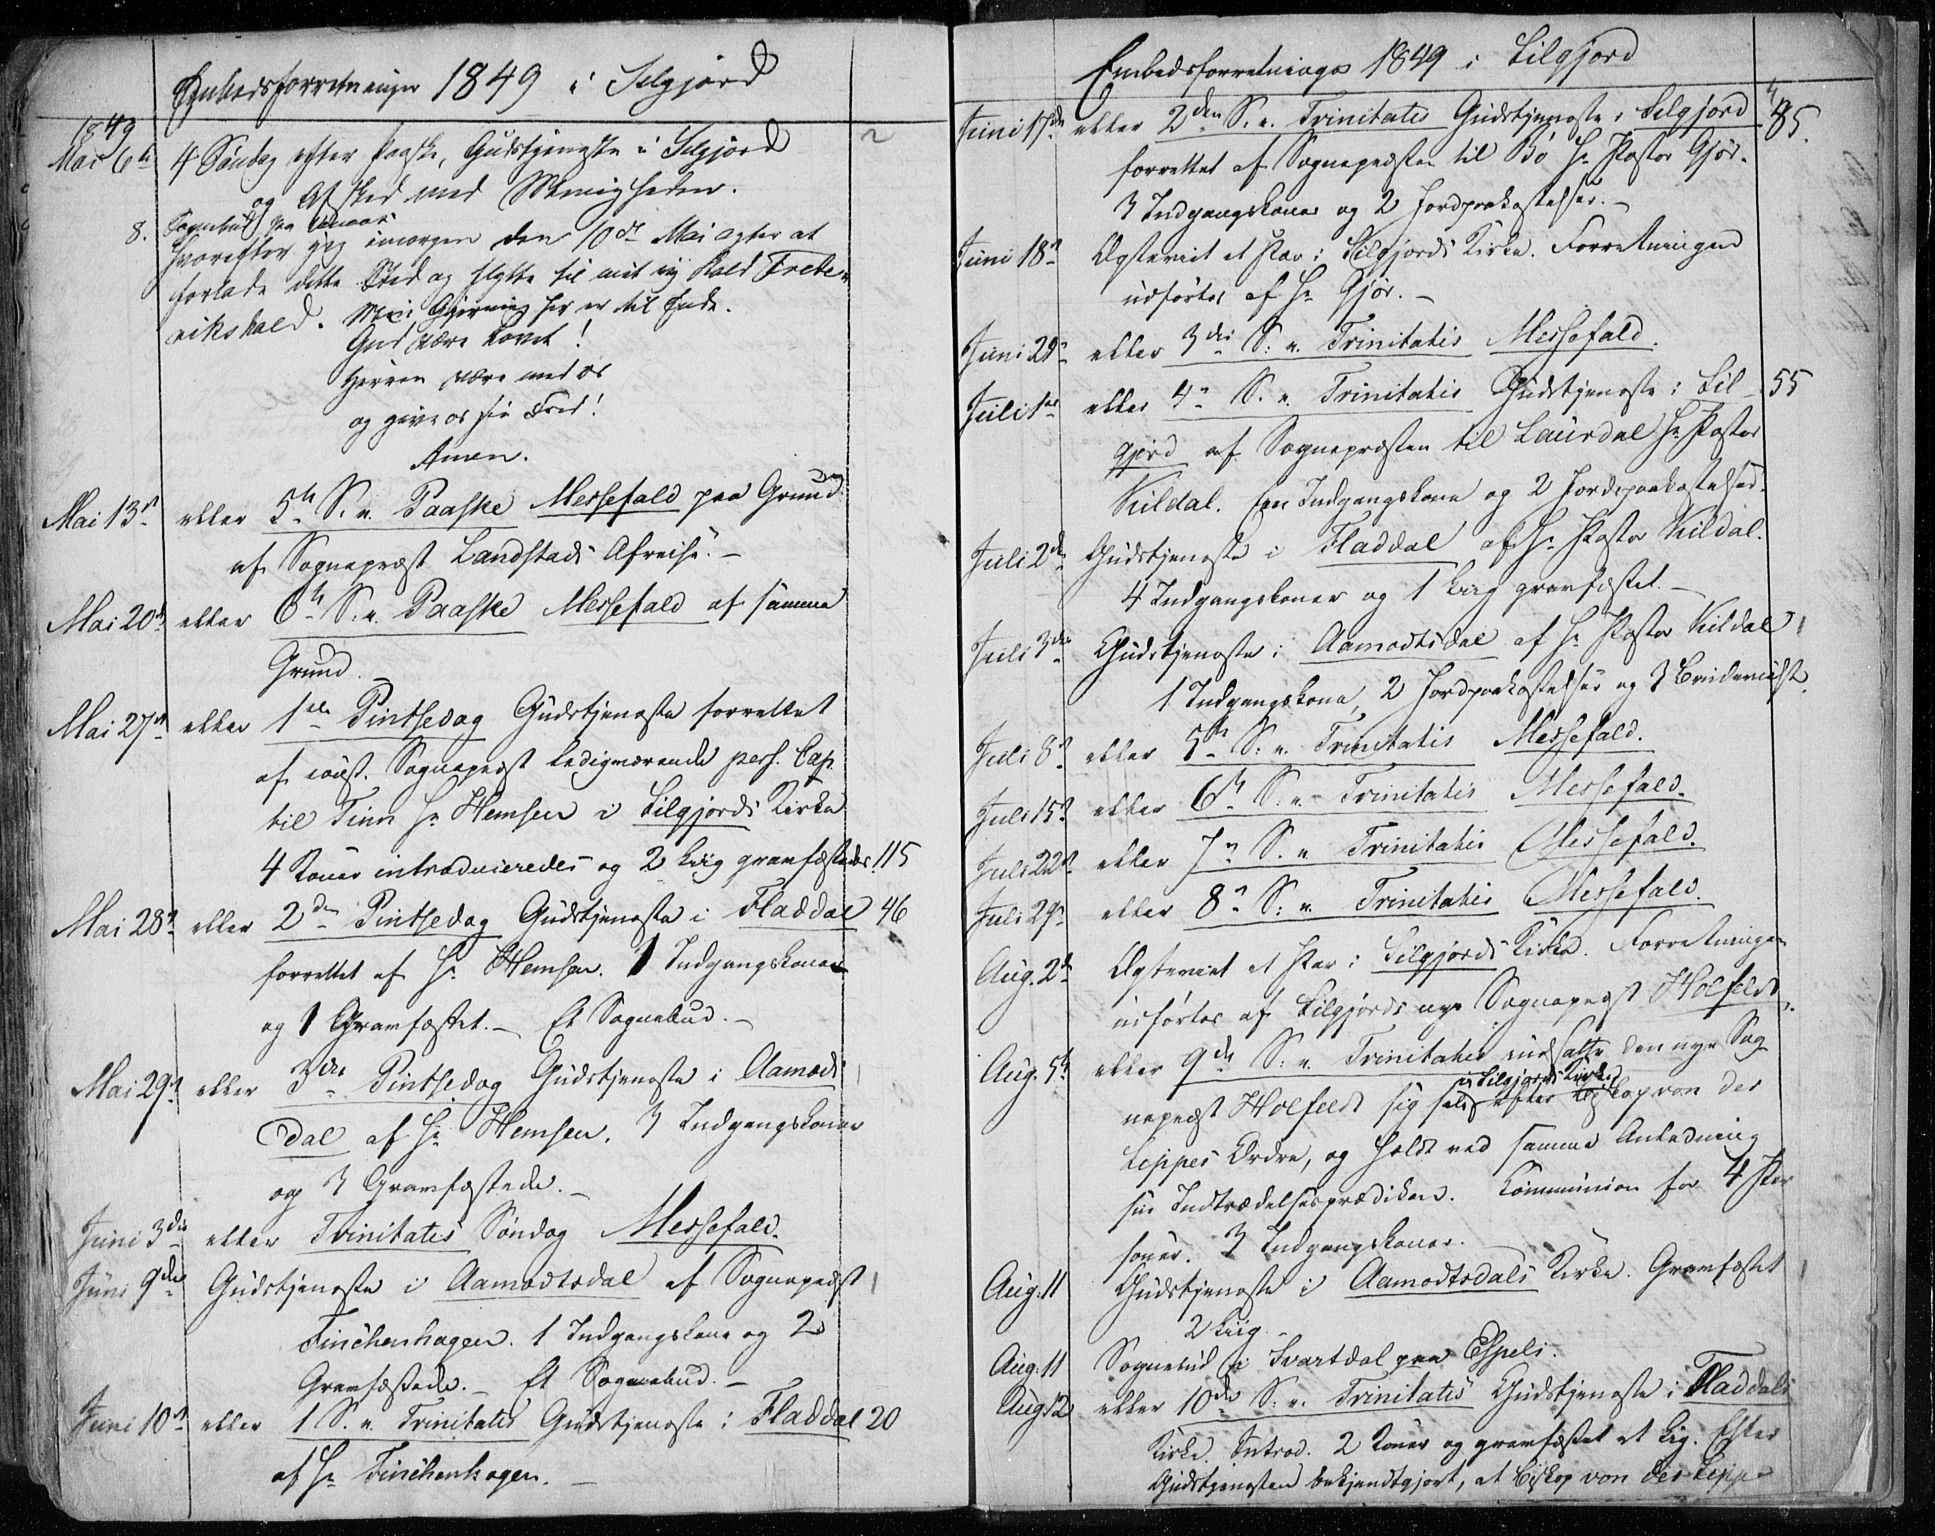 Embedsforretninger 1849 i Selgjord
1849
Mai 6te 4 Søndag efter Paaske, Gudstjeneste i Selgjord
og Afsked med Menigheden.
8. Sognebud paa
hvorefter jeg imorgen den 10de Mai agter at
forlade dette Sted og flytte til mit ny Kald Frede-
rikshald. Min Gjerning her er til Ende.
Gud være lovet!
Herren være med os
og give os sin Fred!
Amen.
Mai 13de eller 5te S. e. Paaske Messefald paa Grund
af Sognepræst Landstads Afreise.
Mai 20de eller 6te S. e. Paaske Messefald af samme
Grund.
Mai 27de eller 1ste Pintsedag Gudstjeneste forrettet
af const. Sognepræst ledigværende pers. Cap.
til Tinn Hr Hemsen i Silgjords Kirke
4 Koner introduceredes og 2 Liig gravfæstedes. 115
Mai 28de eller 2den Pintsedag Gudstjeneste i Fladdal 46
forrettet af Hr Hemsen. 1 Indgangskone
og 1 Gravfæstet. – Et Sognebud. –
Mai 29de eller 3die Pintsedag Gudstjeneste i Aamods
dal af Hr Hemsen. 3 Indgangskoner
og 3 Gravfæstede. –
Juni 3die eller Trinitatis Søndag Messefald.
Juni 9de Gudstjeneste i Aamodtsdal af Sognepræst
Finchenhagen. 1 Indgangskone og 2
Gravfæstede. – Et Sognebud. –
Juni 10de eller 1 S. e. Trinitatis Gudstjeneste i Fladdal 20
af Hr Finchenhagen. –
Embedsforretninger 1849 i Silgjord
Juni 17de eller 2den S. e. Trinitatis Gudstjeneste i Silgjord 85.
forrettet af Sognepræsten til Bø Hr Pastor Gjør.
3 Indgangskoner og 2 Jordpaakastelser. –
Juni 18de Ægteviet et Par i Silgjords Kirke. Forretningen
udførtes af Hr Gjør. –
Juni 24de eller 3die S. e. Trinitatis Messefald.
Juli 1ste eller 4de S. e. Trinitatis Gudstjeneste i Sil- 55
gjord af Sognepræsten til Laurdal Hr Pastor
Kildal. Een Indgangskone og 2 Jordpaakastelser.
Juli 2den Gudstjeneste i Fladdal af Hr Pastor Kildal.
4 Indgangskoner og 1 Liig gravfæstet. –
Juli 3die Gudstjeneste i Aamodtsdal af Hr Pastor Kildal
1 Indgangskone, 2 Jordpaakastelser og 3
Juli 8de eller 5te S. e. Trinitatis Messefald.
Juli 15de eller 6te S. e. Trinitatis Messefald.
Juli 22de eller 7de S. e. Trinitatis Messefald.
Juli 29de eller 8de S. e. Trinitatis Messefald.
Aug. 2den Ægteviet et Par i Silgjords Kirke. Forretningen
udførtes af Silgjords nye Sognepræst Holfeldt.
Aug. 5te eller 9de S. e. Trinitatis indsatte den nye Sog
i Silgjords Kirke
nepræst Holfeldt sig selv efter Biskop von der
Lippes Ordre, og holdt ved samme Anledning
sin Indtrædelsesprædiken. Kommunion for 4 Per
soner. 3 Indgangskoner.
Aug. 11 Gudstjeneste i Aamodtsdals Kirke. Gravfæstet
2 Liig.
Aug. 11 Sognebud i Svartdal paa Espeli.
Aug 12 eller 10de S. e. Trinitatis Gudstjeneste i Fladdals
Kirke. Introd. 2 Koner og gravfæstet et Lig. Efter
Gudstjenesten bekjendtgjort, at Biskop von der Lippe